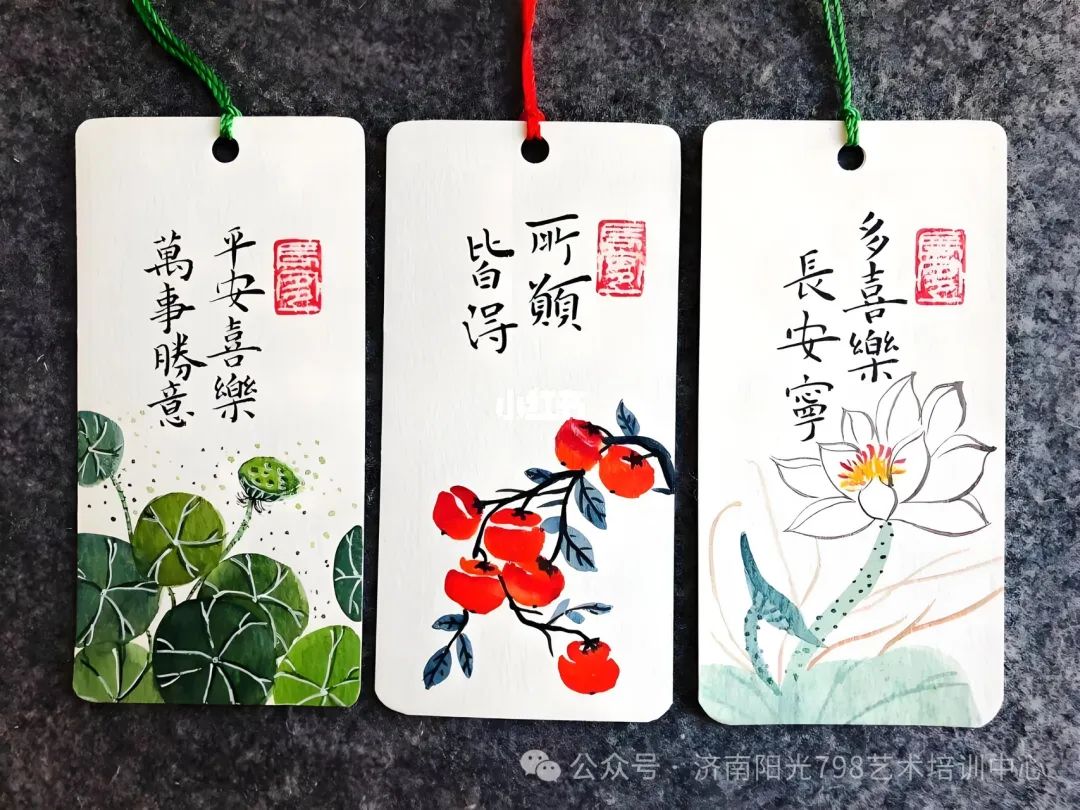 平安喜樂
萬事勝意
所願
皆得
多喜樂
長安寧
公众号 · 济南阳光798艺术培训中心